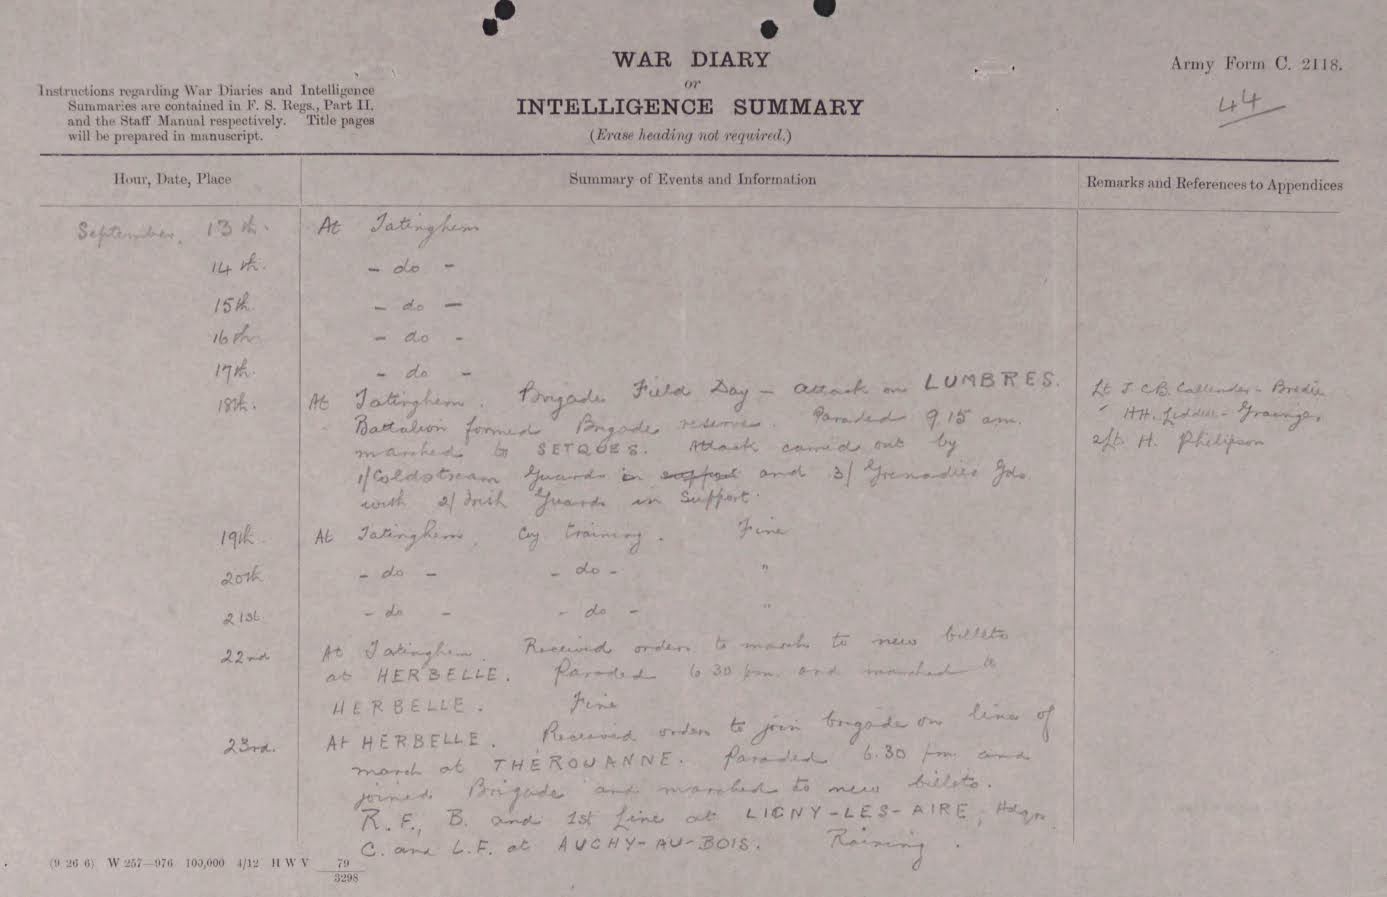 WAR DIARY
or
INTELLIGENCE SUMMARY
(Erase heading not required.)
Army Form C. 2118.
44
Instructions regarding War Diaries and Intelligence
Summaries are contained in F. S. Regs., Part II.
and the Staff Manual respectively. Title pages
will be prepared in manuscript.
Hour, Date, Place
Summary of Events and Information
Remarks and References to Appendices
September. 13th. At Tatinghem
14th. - do -
15th - do -
16th - do -
17th. - do -
18th. At Tatinghem. Brigade Field Day - attack on LUMBRES.
Battalion formed Brigade reserve. Paraded 9.15 am.
marched to SETQUES. Attack carried out by
1/Coldstream Guards in support and 3/ Grenadier Gds
with 2/ Irish Guards in Support.
Lt J C B. Callender - Brodie
" H H. Liddell - Grainger
2/Lt. H. Philipson
19th. At Tatinghem. Coy training. Fine
20th - do - - do - "
21st - do - - do - "
22nd At Tatinghem. Received orders to march to new billets
at HERBELLE. Paraded 6.30 pm. and marched to
HERBELLE. Fine
23rd. At HERBELLE. Received orders to join brigade on line of
march at THEROUANNE. Paraded 6.30 pm and
joined Brigade and marched to new billets.
R.F., B. and 1st Line at LIGNY-LES-AIRE, Hdqrs
C. and L.F. at AUCHY-AU-BOIS. Raining.
(9 26 6) W 257—976 100,000 4/12 H W V 79
3298